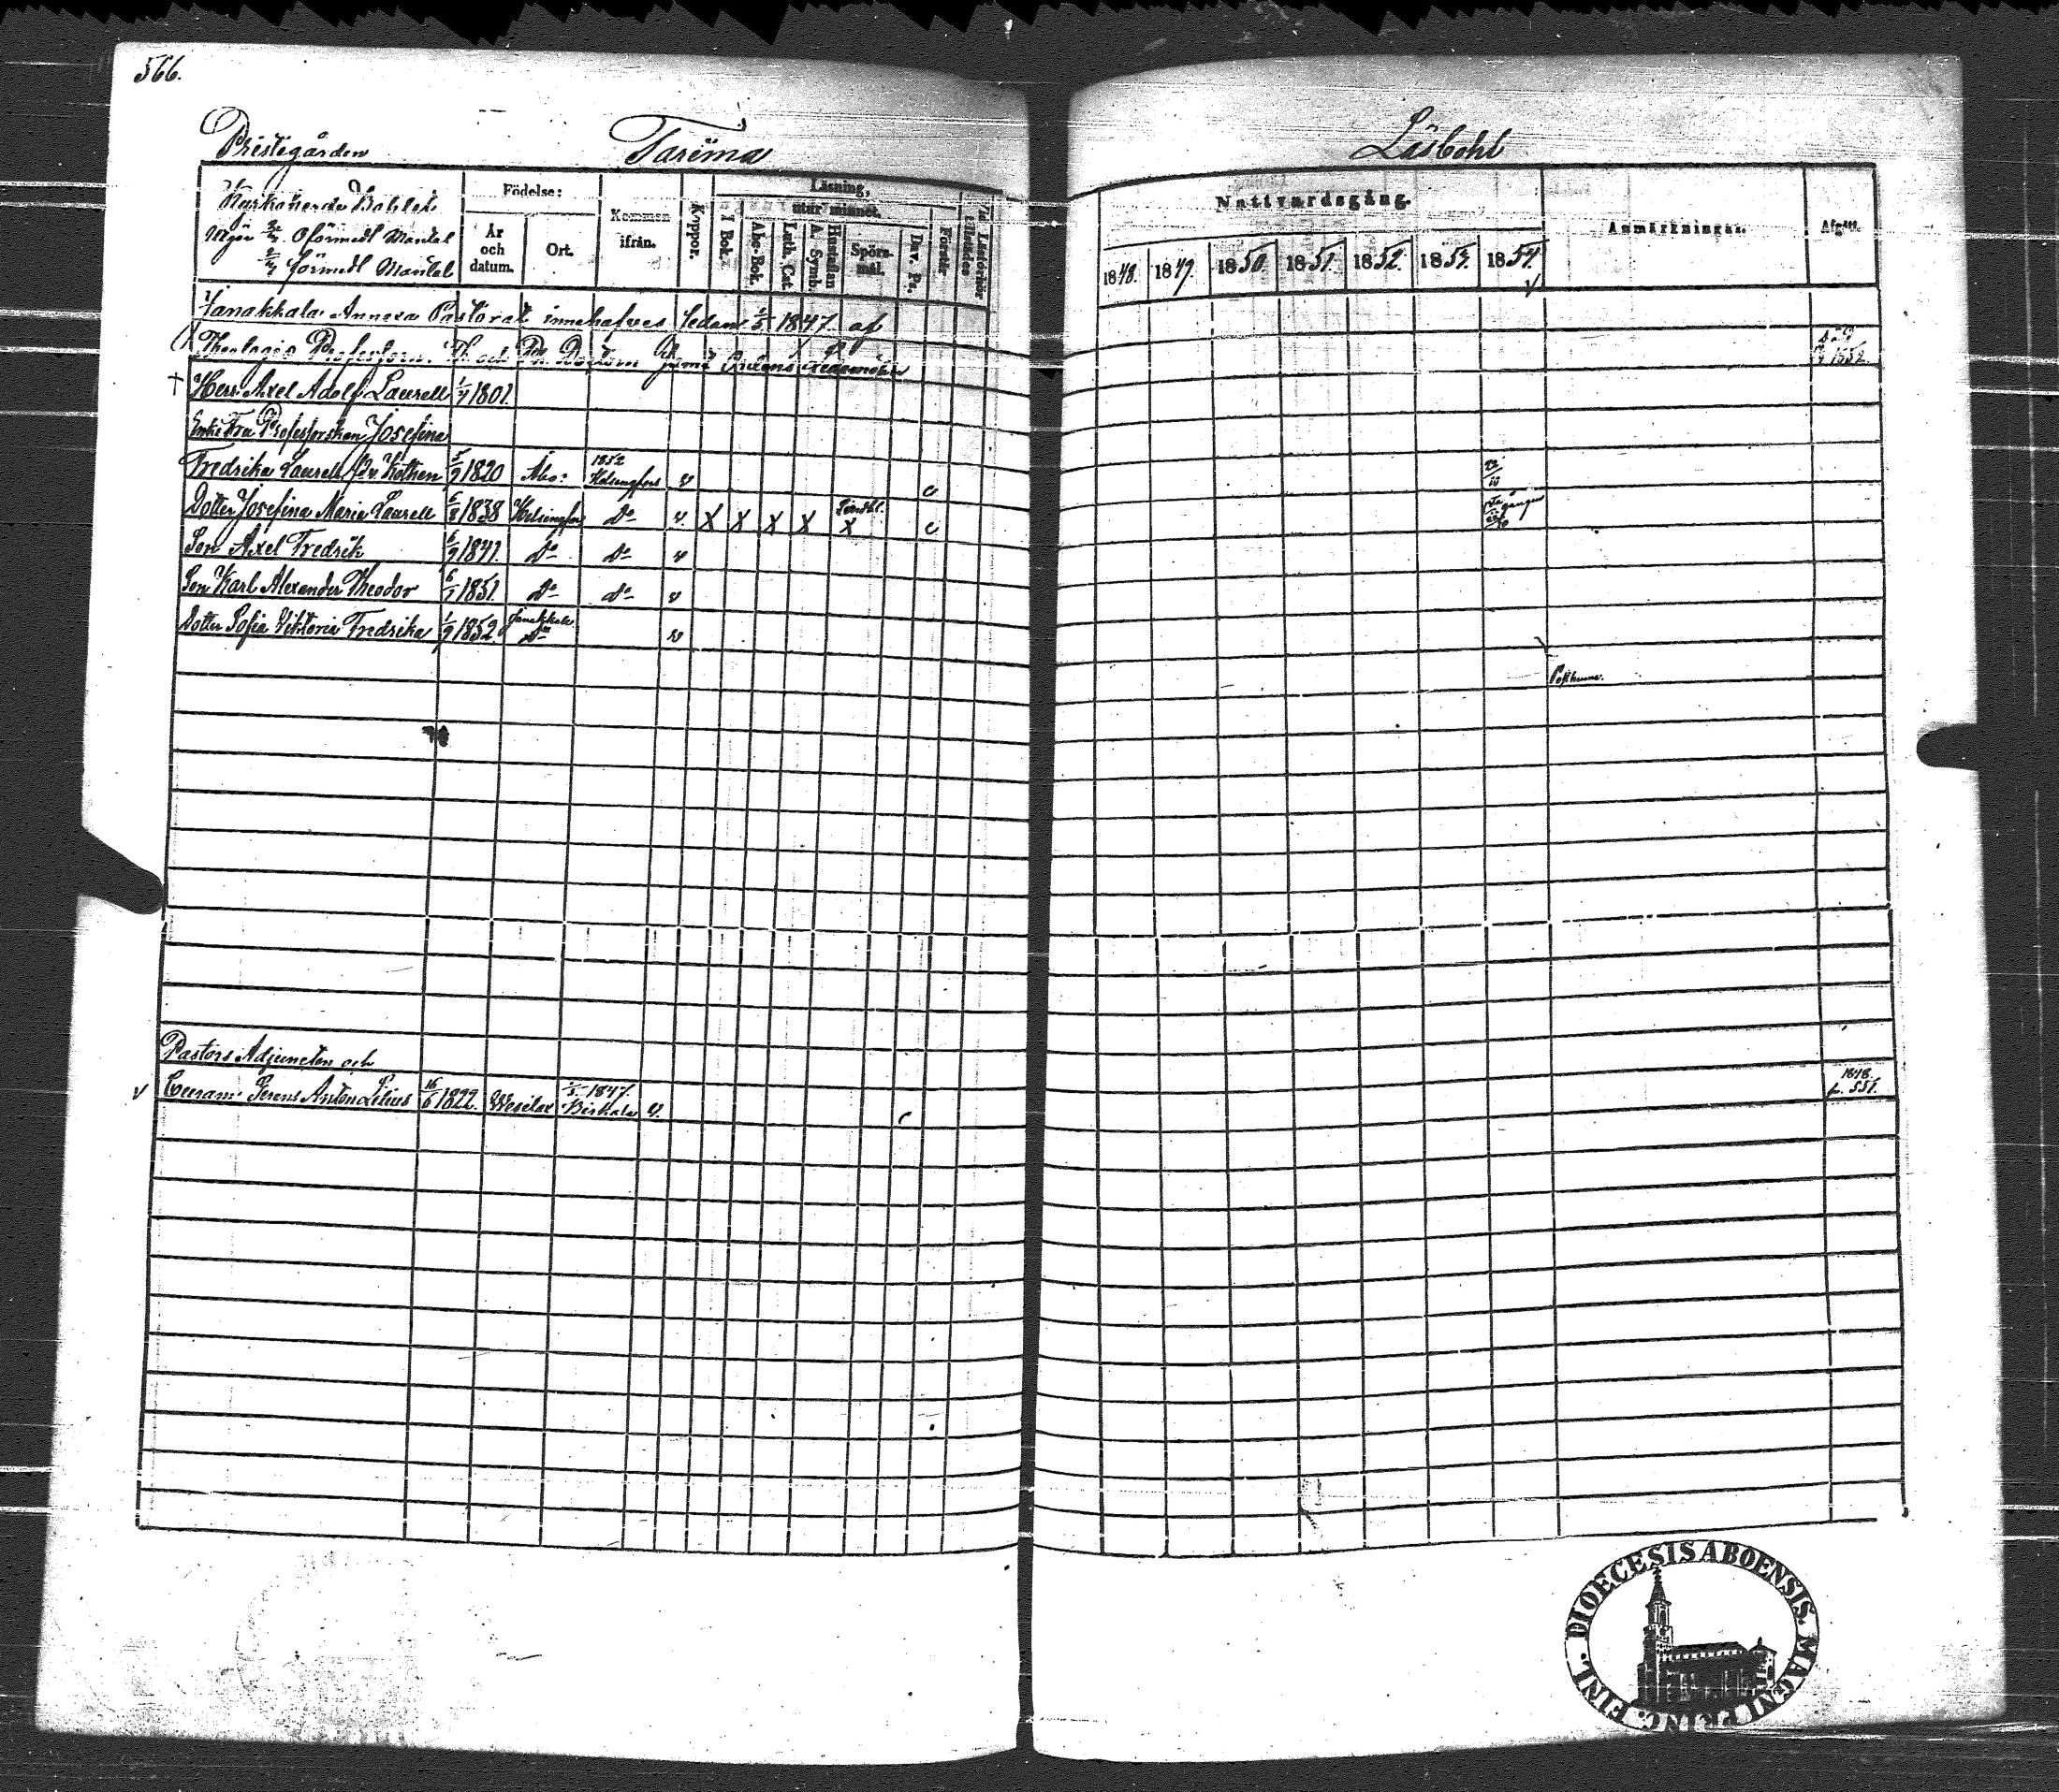 566.
Prestegården Tarima Läsbohl
Kyrkoherde Bohlet
Utgör Oförmedl Mantal
förmedl Mantal
Födelse:
År och datum.
Ort.
Kommen ifrån.
Kyppor.
Läsning,
utur minnet.
I Bok.
Abc-Bok.
Luth. Cat.
A. Symb.
Hustaflan
Spörs-mål.
Dav. Ps.
Förstår
Nattvardsgång.
1848. 1849. 1850. 1851. 1852. 1853. 1854.
Anmärkningar.
Afgått.
Janakkala Annexa Pastorat innehafves sedan 1/5 1847 af
Theologiæ Professorn, Th. och Ph. Doctorn
1852.
† Herr Axel Adolf Laurell 1801.
Enke Fru Professorskan Josefina
Fredrika Laurell f. v. Kothen 5/9 1820 Åbo: 1852 Helsingfors v 22/10
Dotter Josefina Maria Laurell 6/8 1838 Helsingfors Do v X X X X X
Son Axel Fredrik 6/9 1841. Do Do v
Son Karl Alexander Theodor 6/1 1851. Do Do v
Dotter Sofia Viktoria Fredrika 1/9 1852. Janakkala v
Posthuma.
Pastors Adjuncten och
v Anton Lilius 16/6 1822. Wesilax 1/5 1847. Birkala v.
1848.
p. 551.
DIOECESIS ABOENSIS. MAGNI PRINC. FINL.